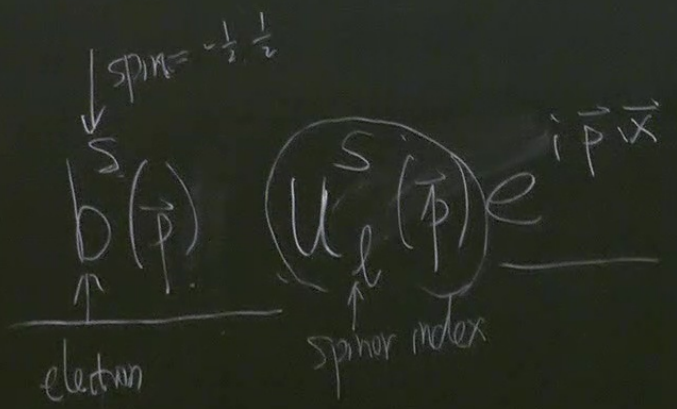 spin = -1/2, 1/2
b^s(\vec{p}) u_l^s(\vec{p}) e^{i\vec{p}.\vec{x}}
electron
spinor index